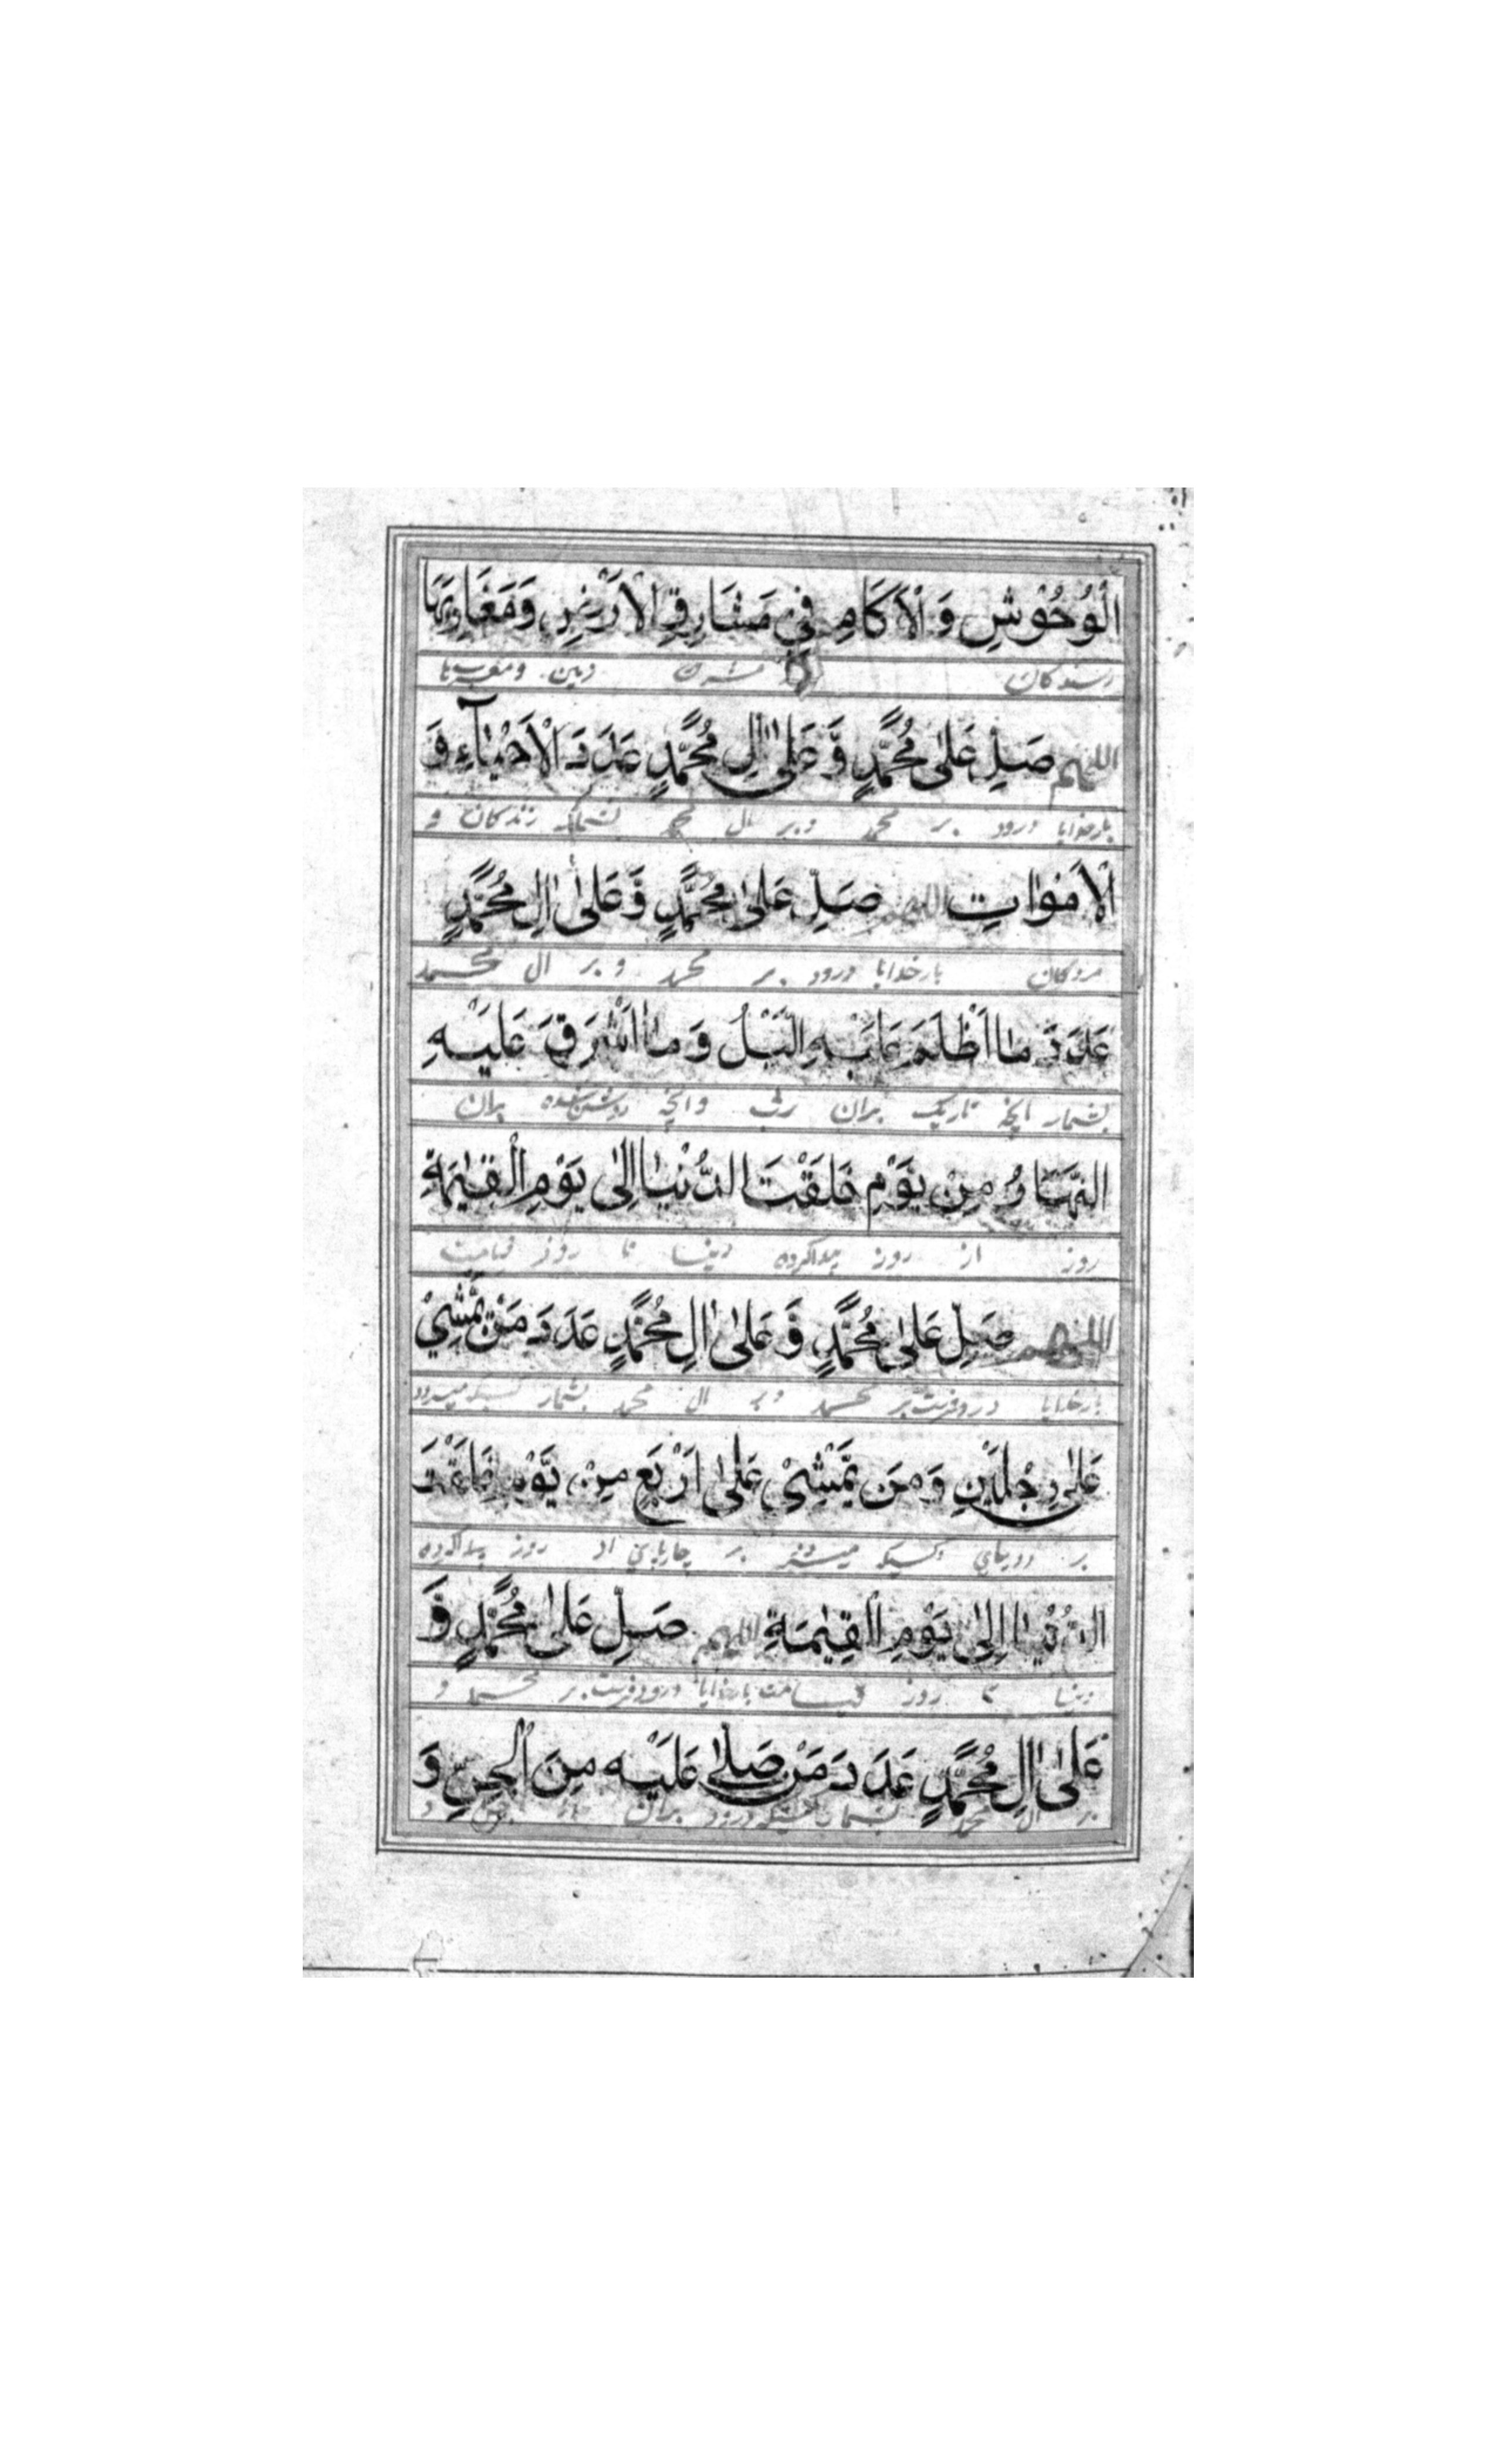 الْوُحُوْشِ وَالْاٰكَامِ فِيْ مَشَارِقِ الْاَرْضِ وَمَغَارِبِهَا
مشرق زمین و مغربها
اللهم صَلِّ عَلٰى مُحَمَّدٍ وَّعَلٰى اٰلِ مُحَمَّدٍ عَدَدَ الْاَحْيَآءِ وَ
بارخدایا درود بر محمد و بر ال محمد زندکان و
الْاَمْوَاتِ اللهم صَلِّ عَلٰى مُحَمَّدٍ وَّعَلٰى اٰلِ مُحَمَّدٍ
مردکان بارخدایا درود بر محمد و بر ال محمد
عَدَدَ مَا اَظْلَمَ عَلَيْهِ الَّيْلُ وَمَا اَشْرَقَ عَلَيْهِ
بشمار انچه تاریک بران شب وانچه روشن شده بران
النَّهَارُ مِنْ يَوْمِ خَلَقْتَ الدُّنْيَا اِلٰى يَوْمِ الْقِيٰمَةِ
روز از روز پیداکرده دنیا تا روز قیامت
اللهم صَلِّ عَلٰى مُحَمَّدٍ وَّعَلٰى اٰلِ مُحَمَّدٍ عَدَدَ مَنْ يَّمْشِيْ
بارخدایا درود فرست بر محمد و بر ال محمد بشمار کسیکه میرود
عَلٰى رِجْلَيْنِ وَمَن يَّمْشِيْ عَلٰى اَرْبَعٍ مِنْ يَّوْمِ خَلَقْتَ
بر دو پای و کسیکه بر چارپای از روز پیداکرده
الدُّنْيَا اِلٰى يَوْمِ الْقِيٰمَةِ اللهم صَلِّ عَلٰى مُحَمَّدٍ وَّ
دنیا تا روز قیامت بارخدایا درود فرست بر محمد و
عَلٰى اٰلِ مُحَمَّدٍ عَدَدَ مَنْ صَلّٰى عَلَيْهِ مِنَ الْجِنِّ وَ
بر ال محمد بشمار کسیکه درود بران از جن و